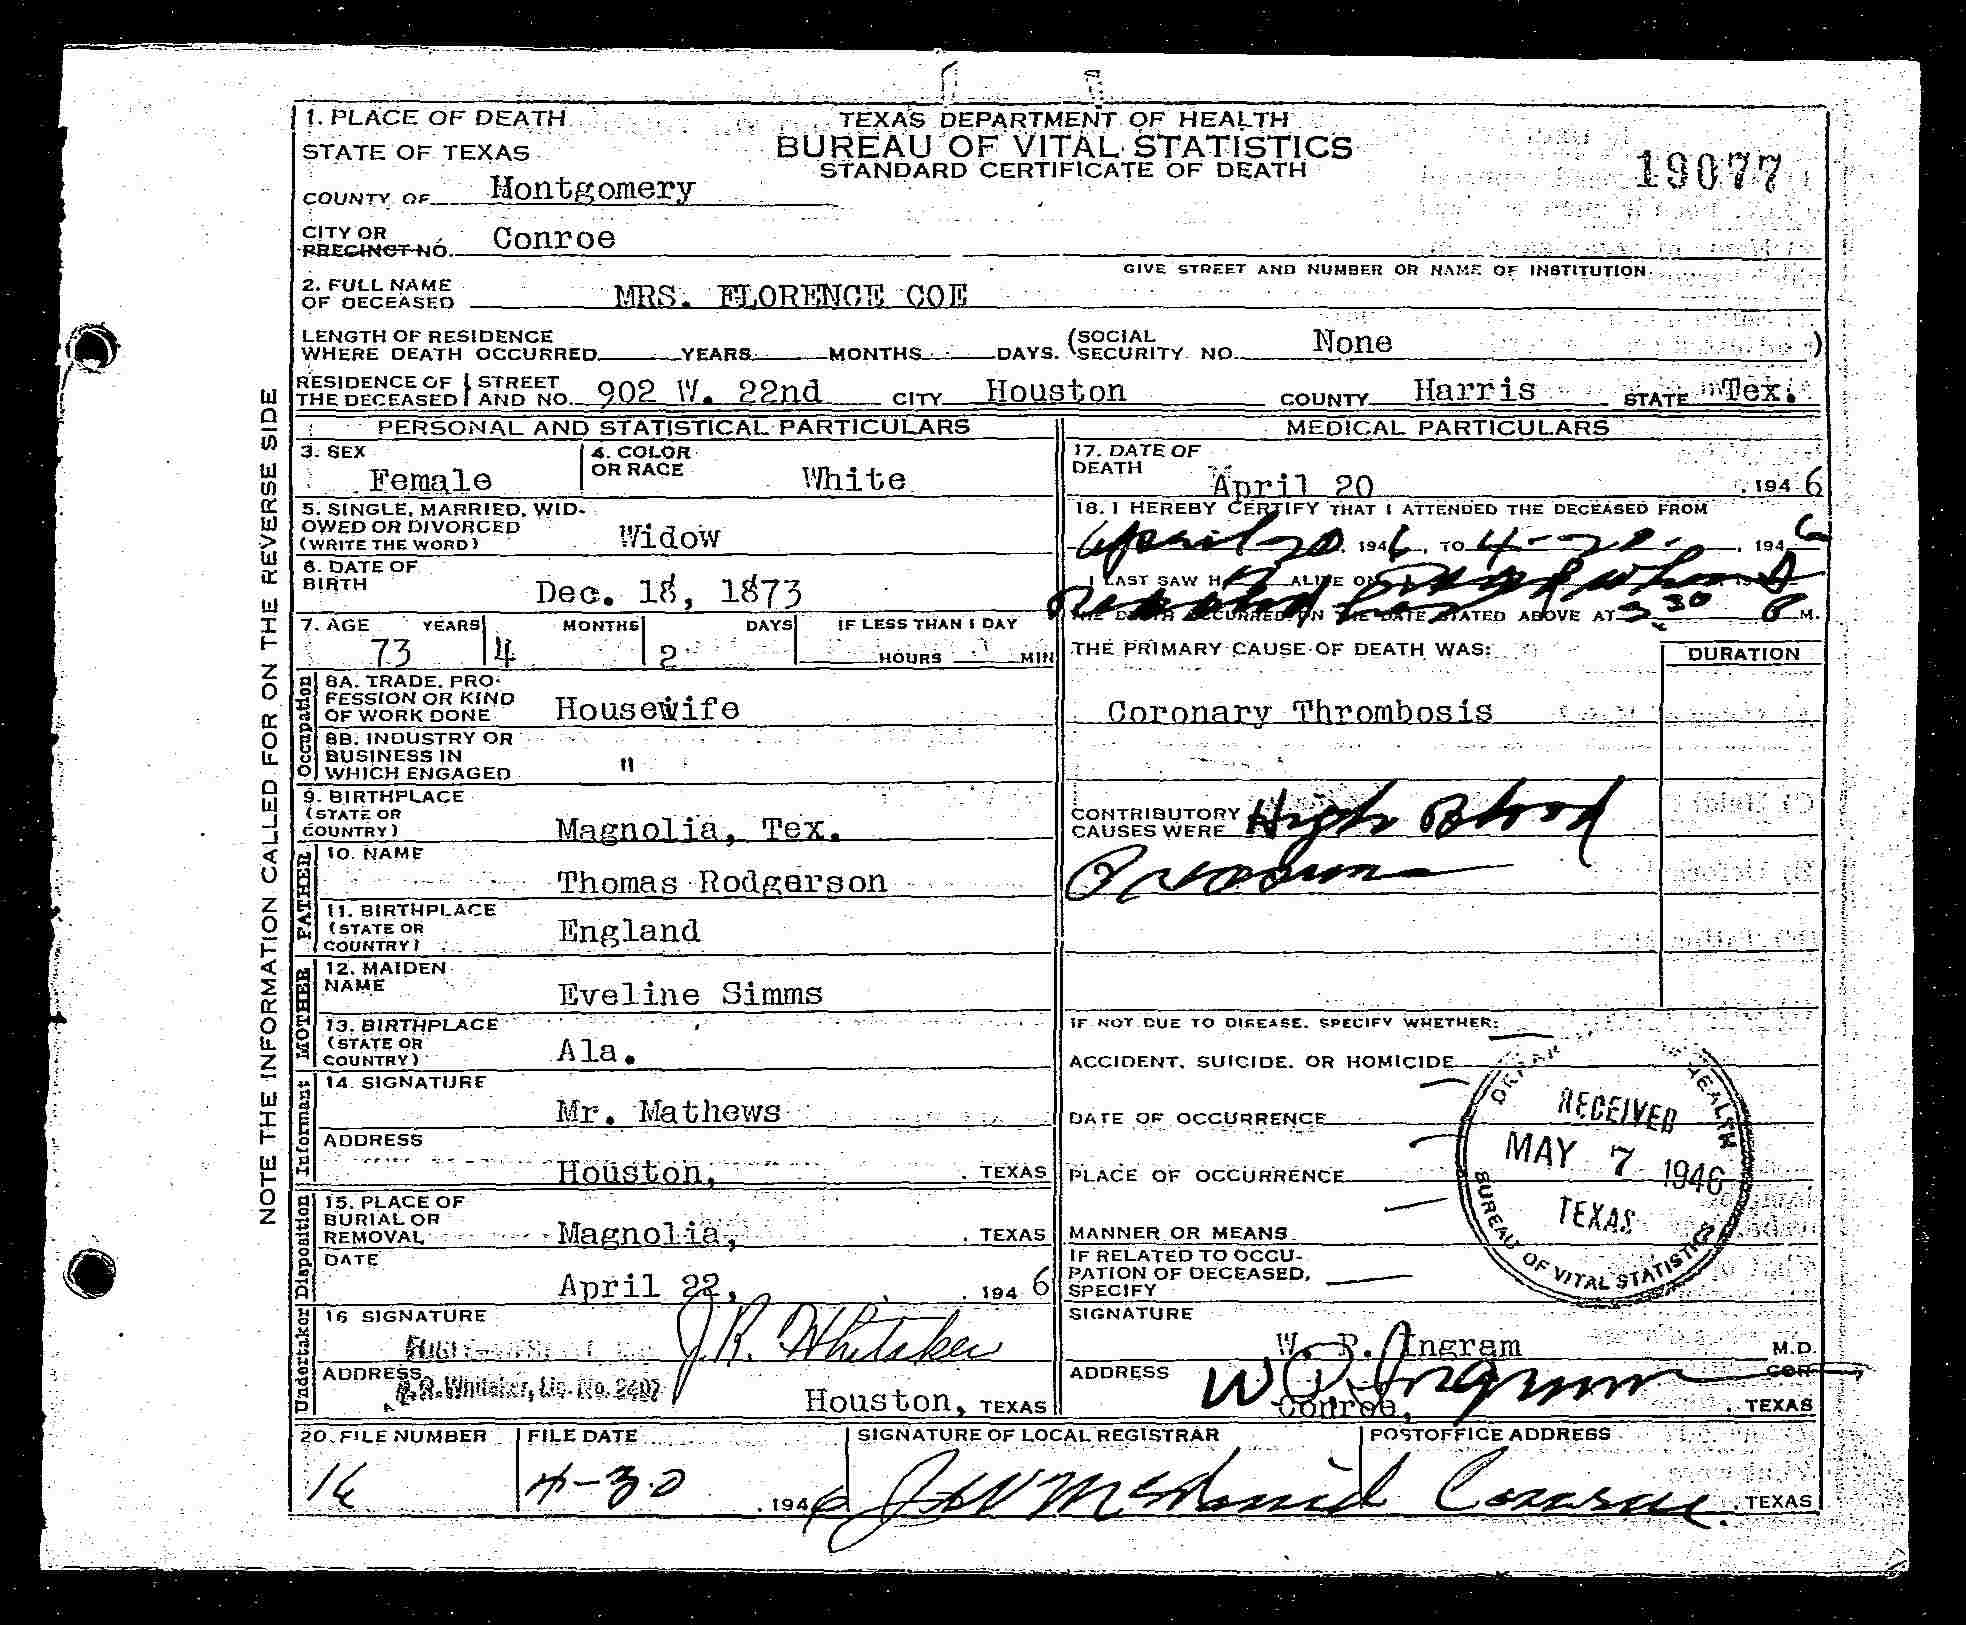 1. PLACE OF DEATH
STATE OF TEXAS
TEXAS DEPARTMENT OF HEALTH
BUREAU OF VITAL STATISTICS
STANDARD CERTIFICATE OF DEATH
19077
COUNTY OF Montgomery
CITY OR PRECINCT NO. Conroe
GIVE STREET AND NUMBER OR NAME OF INSTITUTION
2. FULL NAME OF DECEASED MRS. FLORENCE COE
LENGTH OF RESIDENCE WHERE DEATH OCCURRED YEARS MONTHS DAYS. (SOCIAL SECURITY NO. None )
RESIDENCE OF THE DECEASED STREET AND NO. 902 W. 22nd CITY Houston COUNTY Harris STATE Tex.
PERSONAL AND STATISTICAL PARTICULARS
3. SEX Female
4. COLOR OR RACE White
5. SINGLE, MARRIED, WIDOWED OR DIVORCED (WRITE THE WORD) Widow
6. DATE OF BIRTH Dec. 18, 1873
7. AGE YEARS MONTHS DAYS IF LESS THAN 1 DAY
73 4 2 HOURS MIN
Occupation
8A. TRADE, PROFESSION OR KIND OF WORK DONE Housewife
8B. INDUSTRY OR BUSINESS IN WHICH ENGAGED "
9. BIRTHPLACE (STATE OR COUNTRY) Magnolia, Tex.
FATHER
10. NAME Thomas Rodgerson
11. BIRTHPLACE (STATE OR COUNTRY) England
MOTHER
12. MAIDEN NAME Eveline Simms
13. BIRTHPLACE (STATE OR COUNTRY) Ala.
Informant
14. SIGNATURE Mr. Mathews
ADDRESS Houston, TEXAS
Disposition
15. PLACE OF BURIAL OR REMOVAL Magnolia, TEXAS
DATE April 22, 1946
Undertaker
16 SIGNATURE J.R. Whitaker
ADDRESS J.R. Whitaker, Lic. No. 2407
Houston, TEXAS
MEDICAL PARTICULARS
17. DATE OF DEATH April 20, 1946
18. I HEREBY CERTIFY THAT I ATTENDED THE DECEASED FROM
April 20, 1946, TO 4-20-, 1946
I LAST SAW H ALIVE ON
THE DEATH OCCURRED ON THE DATE STATED ABOVE AT 3:30 P M.
THE PRIMARY CAUSE OF DEATH WAS: DURATION
Coronary Thrombosis
CONTRIBUTORY CAUSES WERE High Blood
Pressure
IF NOT DUE TO DISEASE, SPECIFY WHETHER:
ACCIDENT, SUICIDE, OR HOMICIDE
DATE OF OCCURRENCE
PLACE OF OCCURRENCE
MANNER OR MEANS
IF RELATED TO OCCUPATION OF DECEASED, SPECIFY
RECEIVED
MAY 7 1946
TEXAS
BUREAU OF VITAL STATISTICS
SIGNATURE W. P. Ingram M.D.
W P Ingram
ADDRESS Conroe, TEXAS
20. FILE NUMBER 16
FILE DATE 4-30, 1946
SIGNATURE OF LOCAL REGISTRAR
POSTOFFICE ADDRESS Conroe, TEXAS
NOTE THE INFORMATION CALLED FOR ON THE REVERSE SIDE